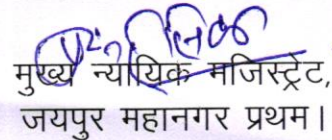 मुख्य न्यायिक मजिस्ट्रेट,
जयपुर महानगर प्रथम।